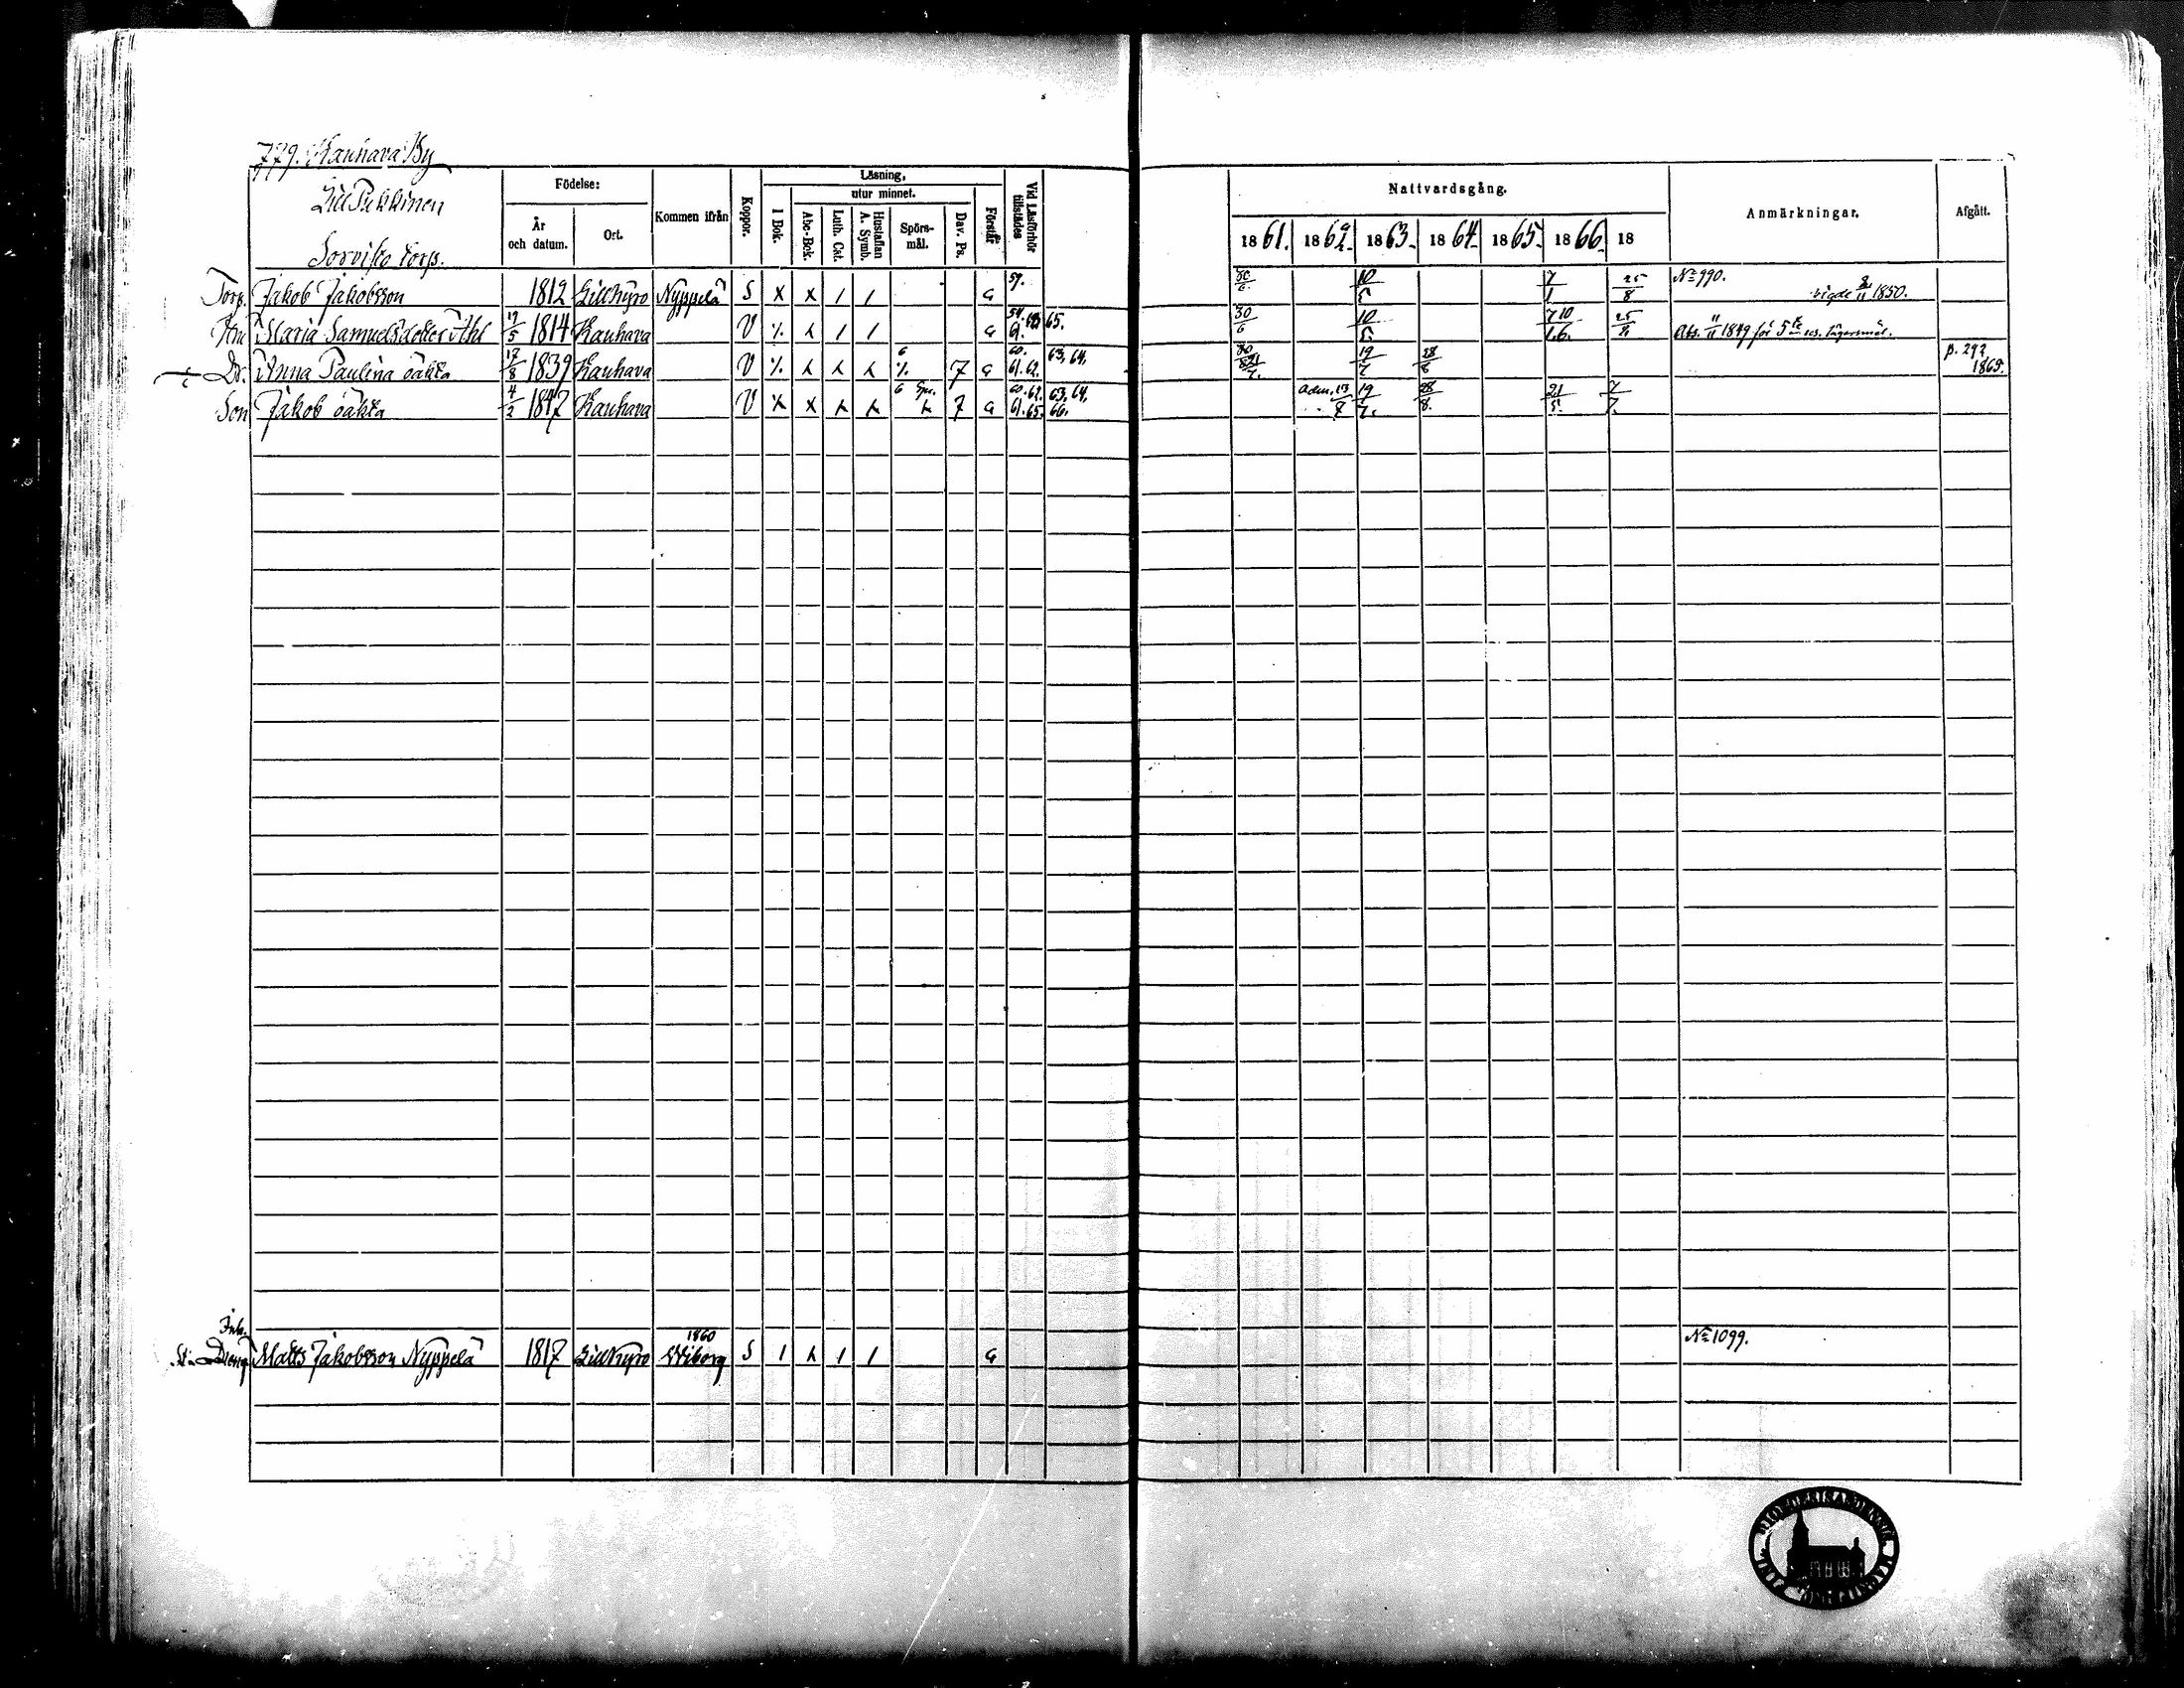 779. Kauhava By
Lill Pukkinen
Sorvisto torp.
Födelse:
År och datum.
Ort.
Kommen ifrån
Koppor.
Läsning,
utur minnet.
I Bok.
Abc-Bok.
Luth. Cat.
Hustaflan A. Symb.
Spörs-mål.
Dav. Ps.
Förstår
Vid Läsförhör tillstädes
Nattvardsgång.
1861. 1862. 1863. 1864. 1865. 1866. 18
Anmärkningar.
Afgått.
Torp. Jakob Jakobsson 1812 Lillkyro Nyppelä S x x / / a 59. 30/6 10/5 7/1 25/8 No 990. vigde 1850.
Maria Samuelsdotter 19/5 1814 Kauhava V / / a 61. 65. 30/6 10/5 7 10 25 Abs. 11/11 1849 för 5te lägersmål.
Dr. Anna Paulina 17/8 1839 Kauhava V 6 7 a 60. 61. 62. 63, 64. 19/7 28/8 p. 292 1865.
Son Jakob 4/2 1847 Kauhava V x 6 7 a 60. 62. 61. 65. 63, 64, 66. adm. 13/7 19/7. 28/8. 21/5. 7/7.
Inh.
Dreng Matts Jakobsson Nyppelä 1817 Lillkyro 1860 Wiborg S / / / a No 1099.